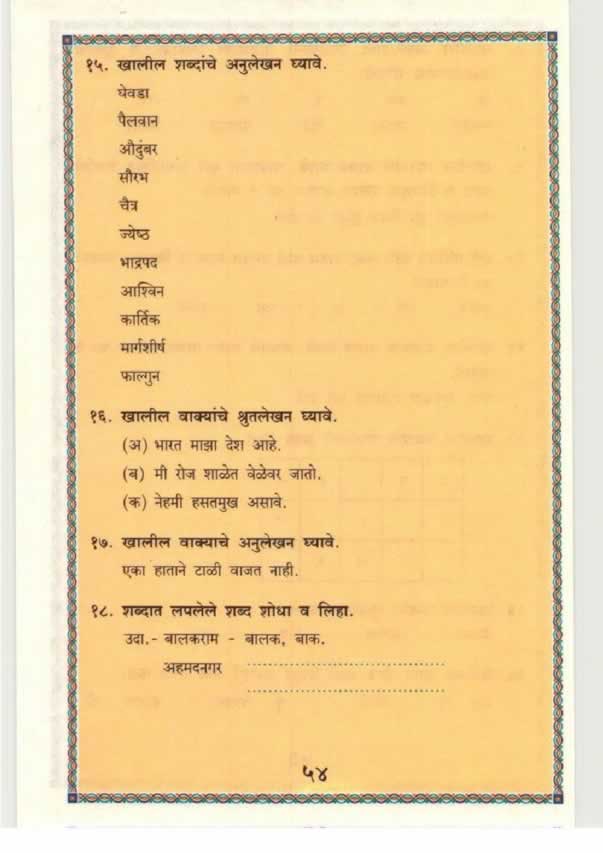 १५. खालील शब्दांचे अनुलेखन घ्यावे.
घेवडा
पैलवान
औदुंबर
सौरभ
चैत्र
ज्येष्ठ
भाद्रपद
आश्विन
कार्तिक
मार्गशीर्ष
फाल्गुन
१६. खालील वाक्यांचे श्रुतलेखन घ्यावे.
(अ) भारत माझा देश आहे.
(ब) मी रोज शाळेत वेळेवर जातो.
(क) नेहमी हसतमुख असावे.
१७. खालील वाक्याचे अनुलेखन घ्यावे.
एका हाताने टाळी वाजत नाही.
१८. शब्दात लपलेले शब्द शोधा व लिहा.
उदा.- बालकराम - बालक, बाक.
अहमदनगर ..............................
..............................
५४